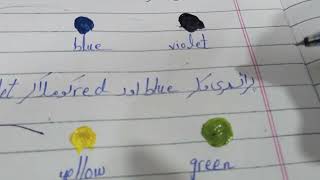 blue violet
پرائمری کلر blue اور red کو ملا کر
yellow green